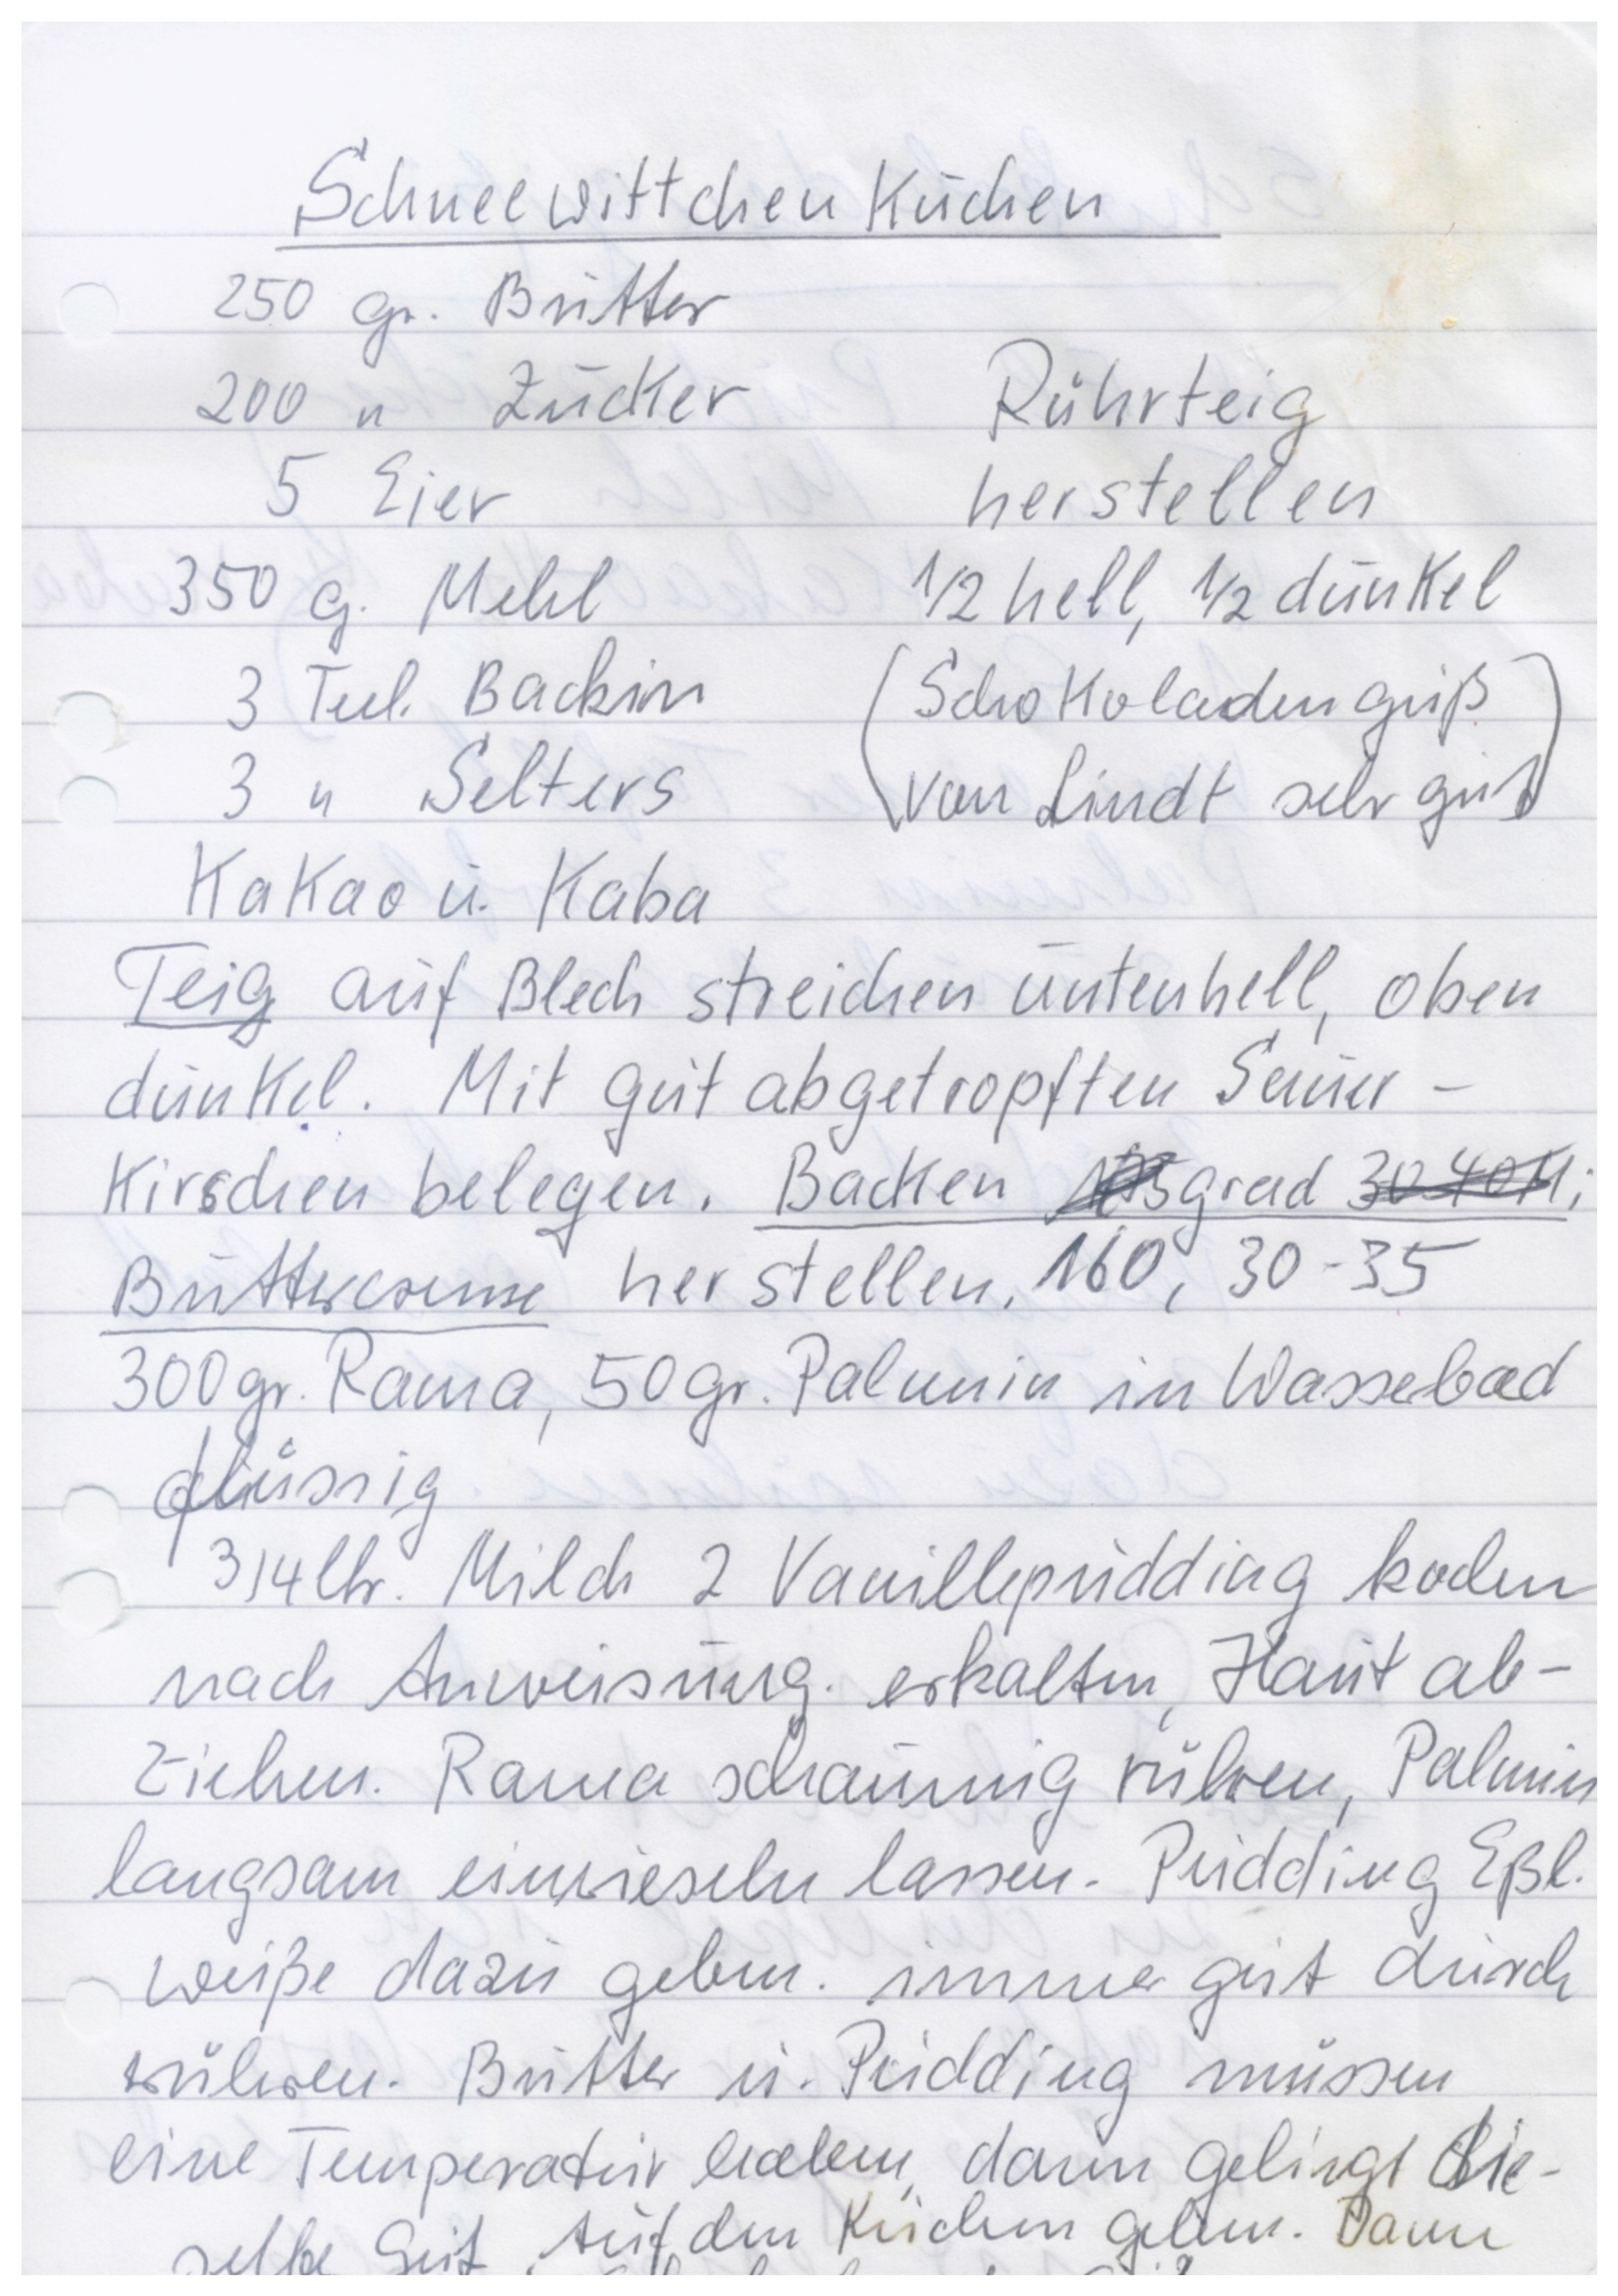 Schneewittchen Kuchen
250 gr. Butter
200 " Zucker
Rührteig
5 Eier
herstellen
350 g. Mehl
1/2 hell, 1/2 dunkel
3 Teel. Backin
(Schokoladenguß
3 " Selters
von Lindt sehr gut)
Kakao u. Kaba
Teig auf Blech streichen unten hell, oben
dunkel. Mit gut abgetropften Sauer-
Kirschen belegen. Backen grad 30-40 Mi
Buttercreme herstellen. 160, 30-35
300 gr. Rama, 50 gr. Palmin in Wassebad
flüssig
3/4 ltr. Milch 2 Vanillepudding kochen
nach Anweisung. erkalten, Haut ab-
ziehen. Rama schaumig rühren, Palmin
langsam einrieseln lassen. Pudding Eßl.
weiße dazu geben. immer gut durch
rühren. Butter u. Pudding müssen
eine Temperatur haben, dann gelingt die-
selbe Gut. Auf den Kuchen geben. Dann